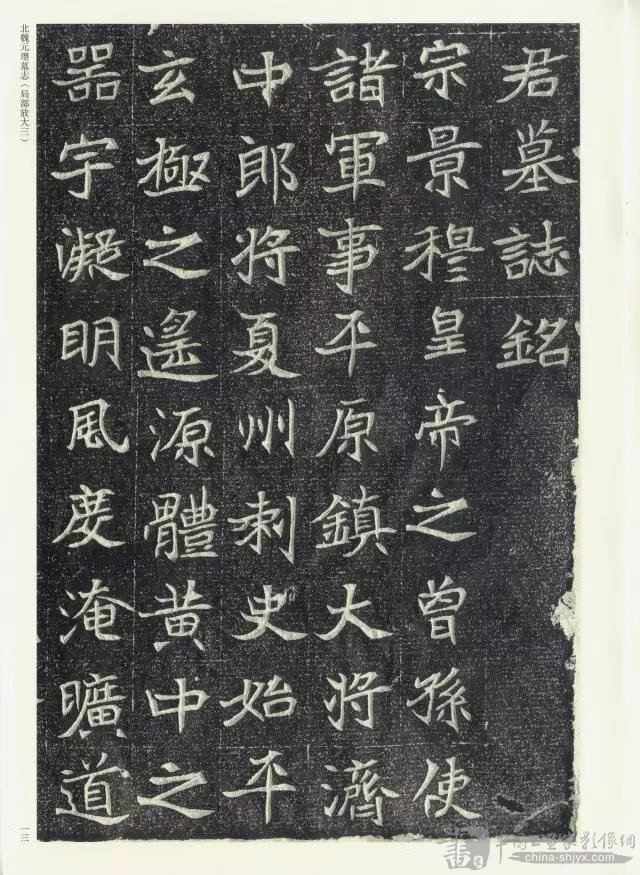 君墓誌銘
宗景穆皇帝之曾孫使
諸軍事平原鎮大將濟
中郎將夏州刺史始平
玄極之遥源體黄中之
器宇凝明風度淹曠道
北魏元瓚墓志（局部放大三）
一三
中国书画家影像網
china-shjyx.com